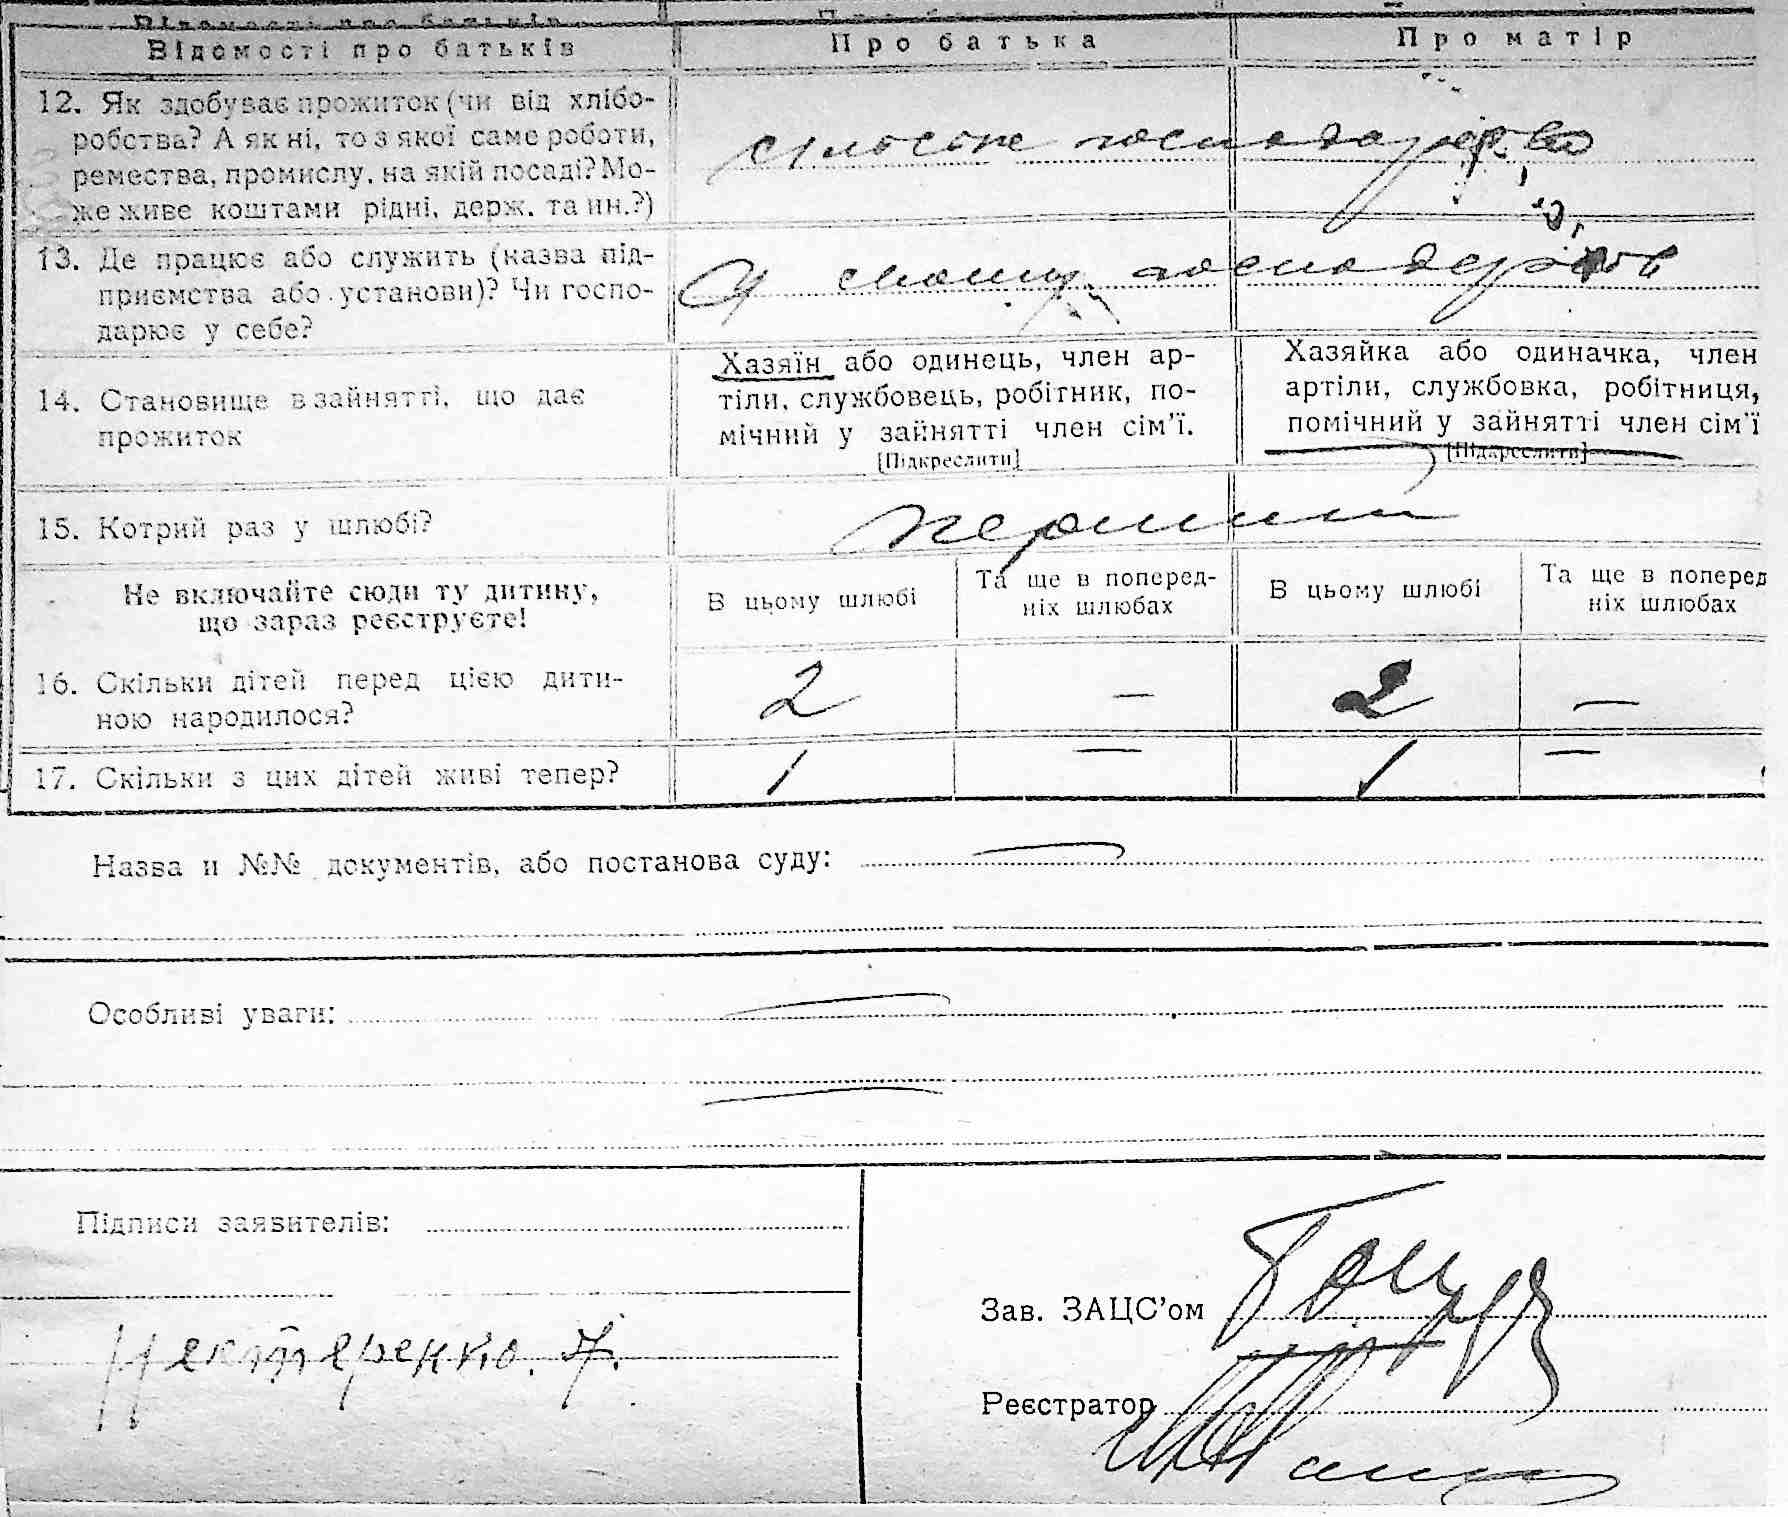 Відомості про батьків
Про батька
Про матір
12. Як здобуває прожиток (чи від хлібо-
робства? А як ні, то з якої саме роботи,
ремества, промислу, на якій посаді? Мо-
же живе коштами рідні, держ. та ин.?)
сільське господарство
13. Де працює або служить (назва під-
приємства або установи)? Чи госпо-
дарює у себе?
У своему господарстві
14. Становище в зайнятті, що дає
прожиток
Хазяїн або одинець, член ар-
тіли, службовець, робітник, по-
мічний у зайнятті член сім'ї.
[Підкреслити]
Хазяйка або одиначка, член
артіли, службовка, робітниця,
помічний у зайнятті член сім'ї
[Підкреслити]
15. Котрий раз у шлюбі?
перший
Не включайте сюди ту дитину,
що зараз реєструєте!
В цьому шлюбі
Та ще в поперед-
ніх шлюбах
В цьому шлюбі
Та ще в поперед
ніх шлюбах
16. Скільки дітей перед цією дити-
ною народилося?
2 — 2 —
17. Скільки з цих дітей живі тепер?
1 — 1 —
Назва и №№ документів, або постанова суду: —
Особливі уваги: —
—
Підписи заявителів:
Нестеренко. Ф.
Зав. ЗАЦС'ом
Реєстратор